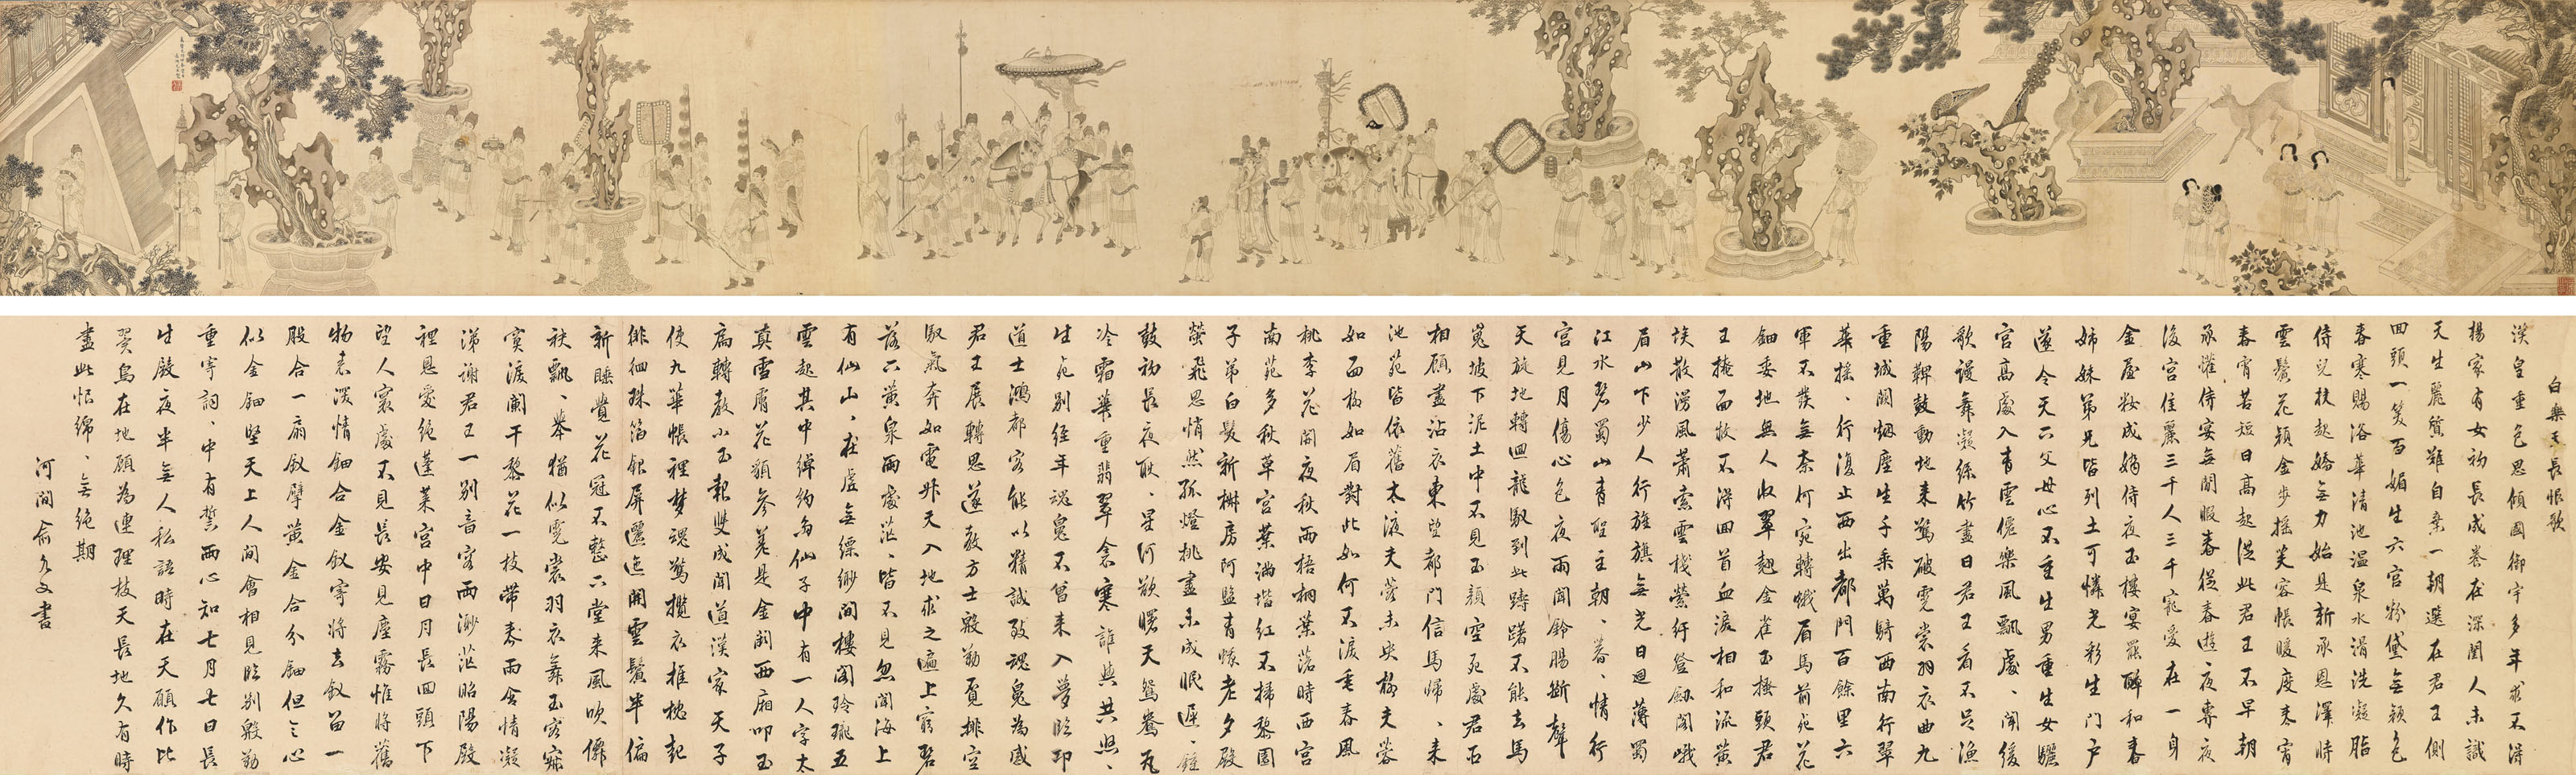 白樂天長恨歌
漢皇重色思傾國御宇多年求不得
楊家有女初長成養在深閨人未識
天生麗質難自棄一朝選在君王側
回頭一笑百媚生六宮粉黛無顏色
春寒賜浴華清池溫泉水滑洗凝脂
侍兒扶起嬌無力始是新承恩澤時
雲鬢花顏金步搖芙容帳暖度春宵
春宵苦短日高起從此君王不早朝
承懽侍宴無閒暇春從春遊夜專夜
後宮佳麗三千人三千寵愛在一身
金屋妝成嬌侍夜玉樓宴罷醉和春
姊妹弟兄皆列土可憐光彩生門戶
遂令天下父母心不重生男重生女驪
宮高處入青雲僊樂風飄處、聞緩
歌謾舞凝絲竹盡日君王看不足漁
陽鞞鼓動地來驚破霓裳羽衣曲九
重城闕烟塵生千乘萬騎西南行翠
華搖、行復止西出都門百餘里六
軍不發無奈何宛轉蛾眉馬前死花
鈿委地無人收翠翹金雀玉搔頭君
王掩面救不得回首血淚相和流黃
埃散漫風蕭索雲棧縈紆登劔閣峨
眉山下少人行旌旗無光日色薄蜀
江水碧蜀山青聖主朝、暮、情行
宮見月傷心色夜雨聞鈴腸斷聲
天旋地轉迴龍馭到此躊躇不能去馬
嵬坡下泥土中不見玉顏空死處君臣
相顧盡沾衣東望都門信馬歸、來
池苑皆依舊太液芙蓉未央柳芙蓉
如面柳如眉對此如何不淚垂春風
桃李花開夜秋雨梧桐葉落時西宮
南苑多秋草宮葉滿堦紅不掃黎園
子弟白髮新椒房阿監青娥老夕殿
螢飛思悄然孤燈挑盡未成眠遲、鐘
鼓初長夜耿、星河欲曙天鴛鴦瓦
冷霜華重翡翠衾寒誰與共悠、
生死別經年魂魄不曾來入夢臨邛
道士鴻都客能以精誠致魂魄為感
君王展轉思遂教方士殷勤覓排空
馭氣奔如電升天入地求之遍上窮碧
落下黃泉兩處茫、皆不見忽聞海上
有仙山、在虛無縹緲間樓閣玲瓏五
雲起其中綽約多仙子中有一人字太
真雪膚花顏參差是金闕西廂叩玉
扃轉教小玉報雙成聞道漢家天子
使九華帳裡夢魂驚攬衣推枕起
徘徊珠箔銀屏邐迤開雲鬢半偏
新睡覺花冠不整下堂來風吹僊
袂飄、舉猶似霓裳羽衣舞玉容寂
寞淚闌干黎花一枝帶春雨含情凝
涕謝君王一別音容兩渺茫昭陽殿
裡恩愛絕蓬萊宮中日月長回頭下
望人寰處不見長安見塵霧惟將舊
物表深情鈿合金釵寄將去釵留一
股合一扇釵擘黃金合分鈿但令心
似金鈿堅天上人間會相見臨別殷勤
重寄詞、中有誓兩心知七月七日長
生殿夜半無人私語時在天願作比
翼鳥在地願為連理枝天長地久有時
盡此恨綿、無絕期
河間俞允文書